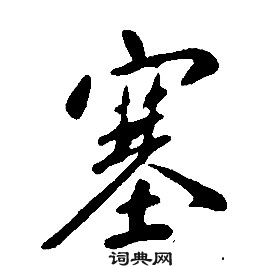 塞
词典网